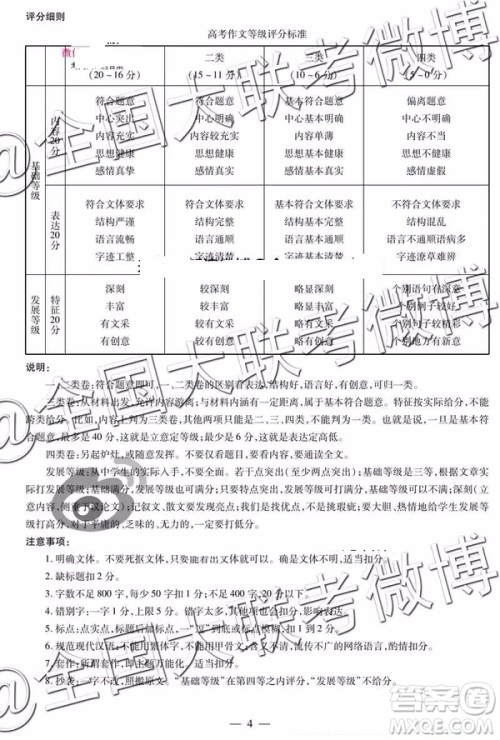 评分细则
高考作文等级评分标准
二类 三类 四类
(20~16分) (15~11分) (10~6分) (5~0分)
基础等级
内容20分
符合题意 符合题意 基本符合题意 偏离题意
中心突出 中心明确 中心基本明确 中心不明确
内容充实 内容较充实 内容单薄 内容不当
思想健康 思想健康 思想基本健康 思想不健康
感情真挚 感情真实 感情基本真实 感情虚假
表达20分
符合文体要求 符合文体要求 基本符合文体要求 不符合文体要求
结构严谨 结构完整 结构基本完整 结构混乱
语言流畅 语言通顺 语言基本通顺 语言不通顺语病多
字迹工整 字迹清楚 字迹基本清楚 字迹潦草难辨
发展等级
特征20分
深刻 较深刻 略显深刻 个别语句有深意
丰富 较丰富 略显丰富 个别例子较好
有文采 较有文采 略显文采 个别句子较精彩
有创意 较有创意 略显创意 个别地方有创意
说明:
一、二类卷:符合题意即可,一、二类卷的区别看表达,结构好,语言好,有创意,可归一类。
三类卷:从材料出发,允许内容游离:与内容有一定距离,属于基本符合。特征按实际给分,不能
跨类给分。比如:内容上判为三类卷,其他两项只能是二、三、四类,不能判为一类。也就是基本符
合题意,最多是40分,这就是立意定等级;最少是6分,这就是表达定高低。
四类卷:另起炉灶,不符合要求。不要仅看题目,看要求,要通读全文。
发展等级:从中学生的实际出发,不要用完美的眼光。若干点突出(至少两点突出),根据文章
实际打发展等级的分。基础等级打三等,发展等级可以打二等,但不能打一等,以此类推。
发展等级:基础满分,发展不一定满分;发展满分,基础一定满分。有的可以打满分:深刻(立
意深刻,侧重于议论文);记叙文、散文要发现其亮点。我们提出:我手写我心,要大胆、热情地给分
打高分,对于平庸的、乏味的、无力的,一定要打低分。
注意事项:
1. 明确文体。不要死抠文体,只要能看出文体就可以。确是文体不明,适当扣分。
2. 缺标题扣2分。
3. 字数不足800字,每少50字扣1分;不足400字,20分以下。
4. 错别字:一字1分,上限5分。错字太多,其他项太差,也可适当多扣。
5. 标点:点实点,标题后加标点,一“逗”到底或标点模糊,扣1到2分。
6. 规范现代汉语:不能用繁体字,不能用甲骨文;含义不明的,流传不广的网络语言,酌情扣分。
7. 套作:所谓套作,即万能作文,适当扣分。
8. 抄袭:一字不改,照搬原文。“基础等级”在第四等之内评分,“发展等级”不给分。
— 4 —
@全国大联考微博
@全国大联考微博
@全国大联考微博
答案圈
MXQE.COM